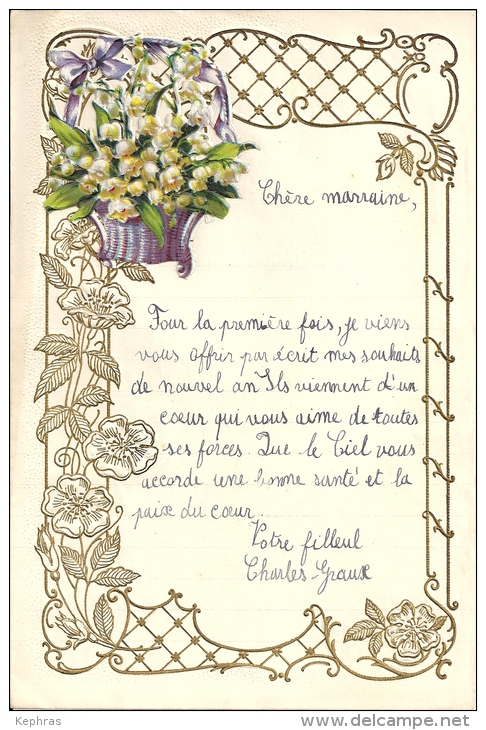 Chère marraine,
Pour la première fois, je viens
vous offrir par écrit mes souhaits
de nouvel an Ils viennent d'un
coeur qui vous aime de toutes
ses forces. Que le Ciel vous
accorde une bonne santé et la
paix du coeur.
Votre filleul
Charles Graux
Kephras
www.delcampe.net